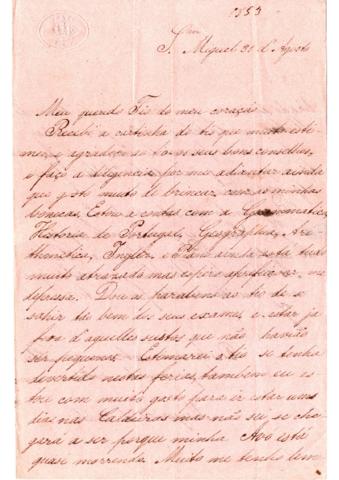 1853
S. Miguel 31 d'Agosto
Meu querido Tio do meu coração
Recebi a cartinha do tio que muito esti-
mei e agradeço ao tio os seus bons conselhos,
e faço a deligencia por me adiantar ainda
que gosto muito de brincar com as minhas
bonecas. Estou a contas com a Grammatica,
Historia de Portugal, Geographia, Ari-
thmetica, Inglez, e Piano ainda está tudo
muito atrazado mas espero aproveitar me
depressa. Dou os parabens ao tio de se
sahir tão bem dos seus exames, e estar já
fora d'aquelles sustos que não havião
ser pequenos. Estimarei o tio se tenha
devertido nestas ferias, tambem eu es
tou com muito gosto para ir estar uns
dias nas Caldeiras mas não sei se che
gará a ser porque minha Avó está
quasi morrendo. Muito me tenho lem